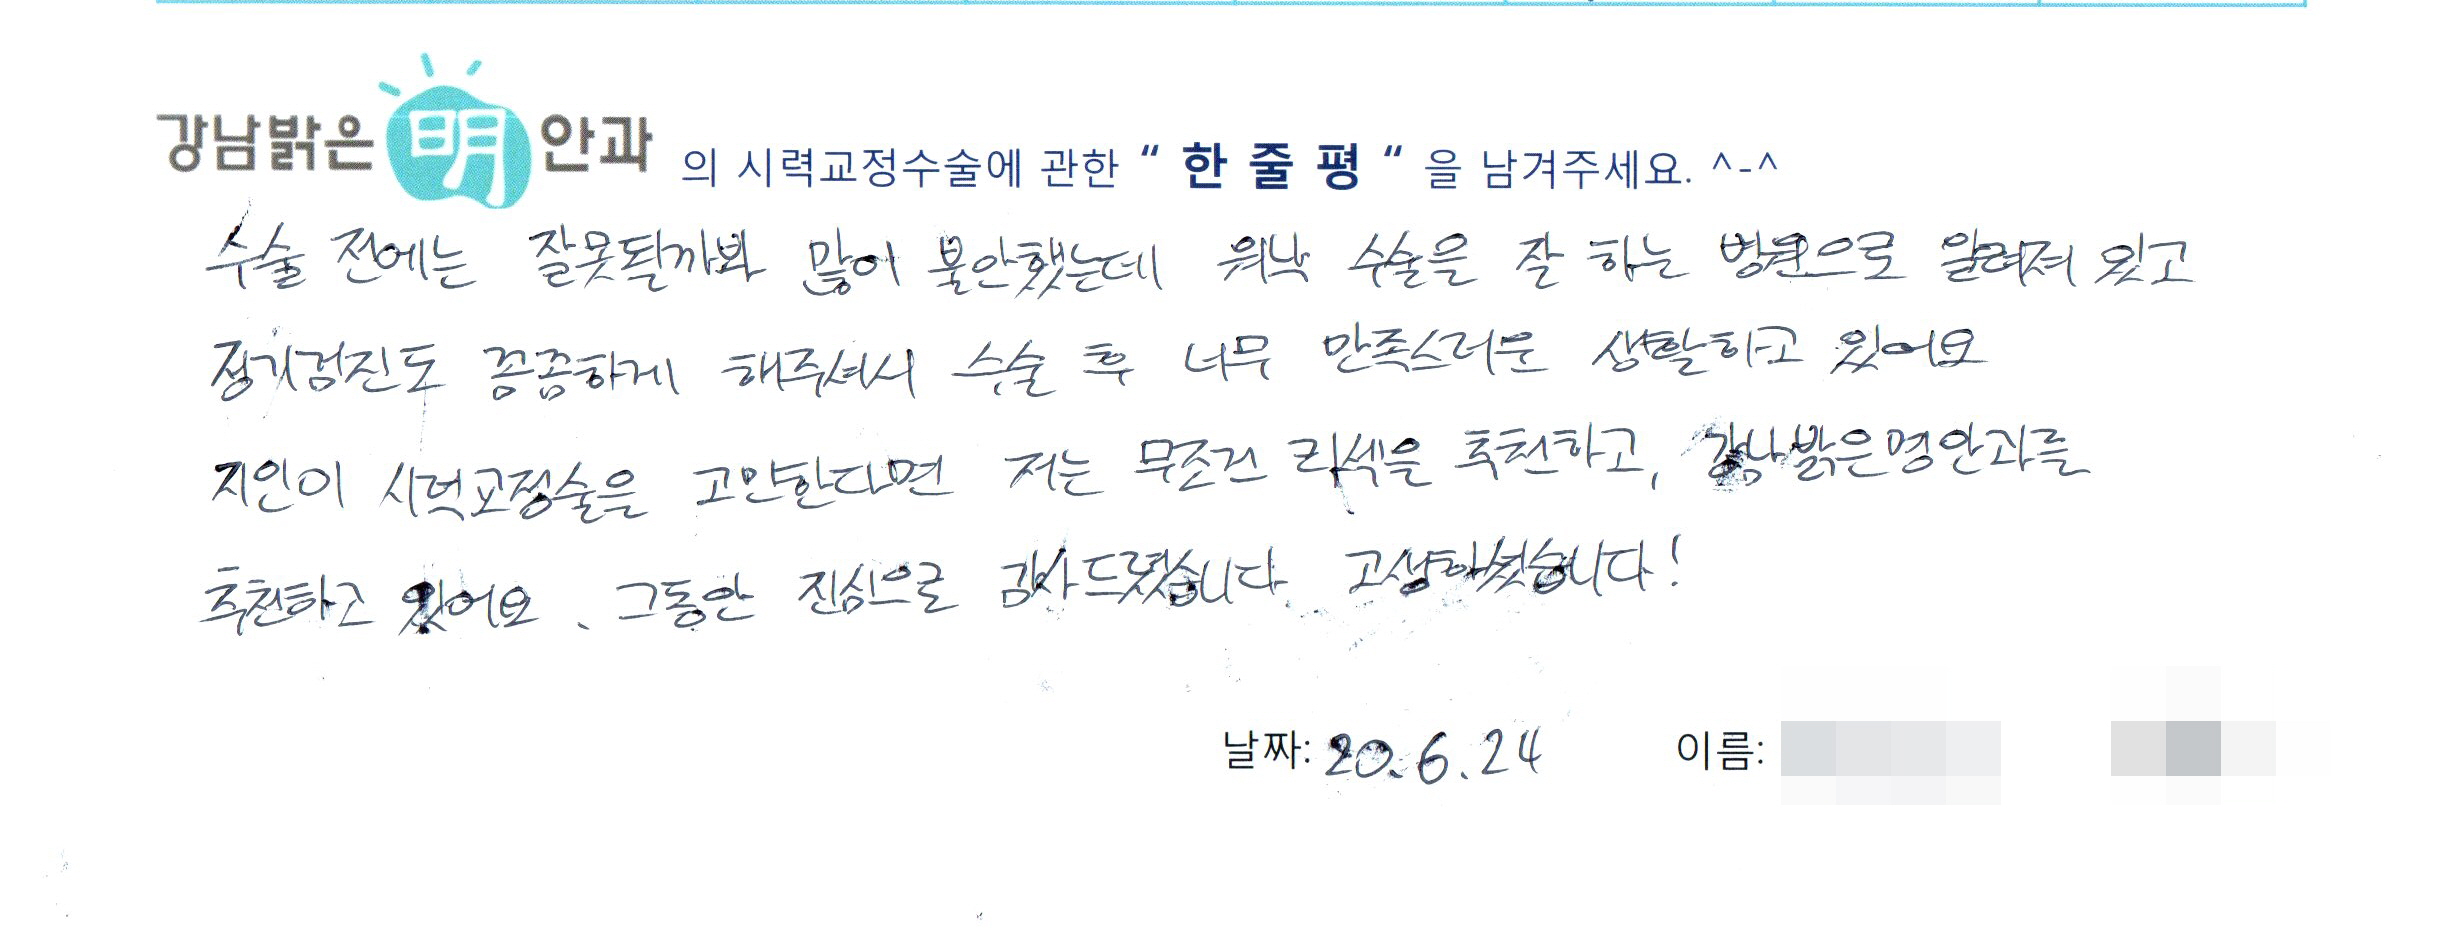 강남밝은 明 안과 의 시력교정수술에 관한 “ 한 줄 평 “ 을 남겨주세요. ^-^
수술 전에는 잘못될까봐 많이 불안했는데 워낙 수술을 잘 하는 병원으로 알려져 있고
정기검진도 꼼꼼하게 해주셔서 수술 후 너무 만족스러운 생활하고 있어요
지인이 시력교정술은 고안한다면 저는 무조건 라섹을 추천하고, 강남밝은명안과를
추천하고 있어요. 그동안 진심으로 감사드렸습니다. 고생하셨습니다!
날짜: 20.6.24 이름: